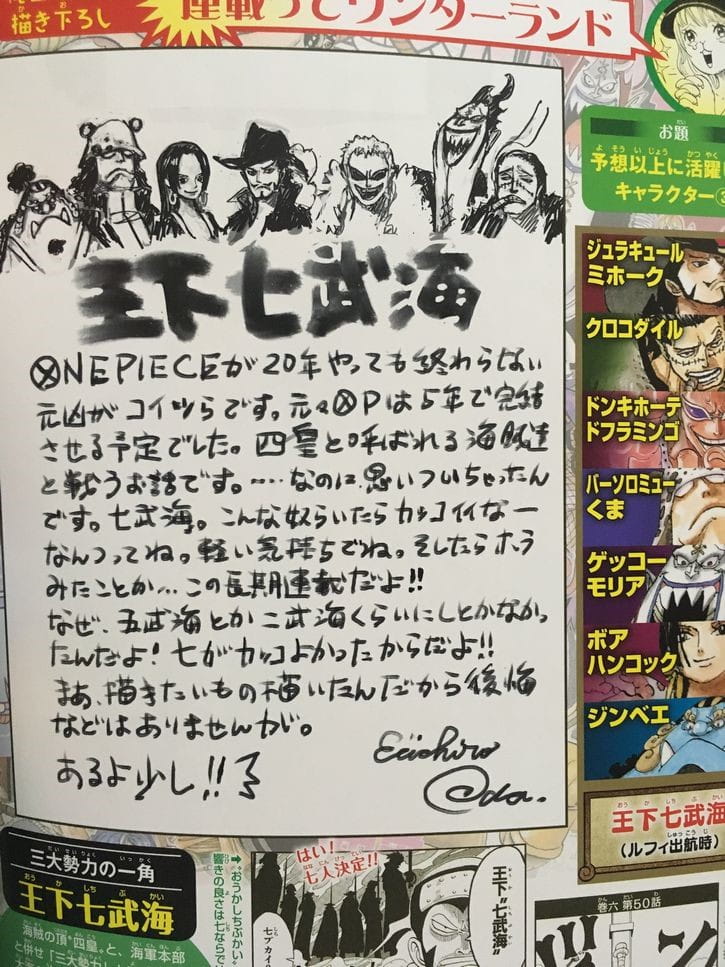 描き下ろし
連載ってワンダーランド
お題
予想以上に活躍
キャラクター③
王下七武海
ⓍNEPIECEが20年やっても終わらない
元凶がコイツらです。元々ⓍPは5年で完結
させる予定でした。四皇と呼ばれる海賊達
と戦うお話です。……なのに、思いついちゃったん
です。七武海。こんな奴らいたらカッコイイなー
なんつってね。軽い気持ちでね。そしたらホラ
みたことか…この長期連載だよ!!
なぜ、五武海とか二武海くらいにしとかなかっ
たんだよ!七がカッコよかったからだよ!!
まあ、描きたいもの描いたんだから後悔
などはありませんが。
あるよ少し!!
Eiichiro
Oda.
ジュラキュール
ミホーク
クロコダイル
ドンキホーテ
ドフラミンゴ
バーソロミュー
くま
ゲッコー
モリア
ボア
ハンコック
ジンベエ
王下七武海
(ルフィ出航時)
三大勢力の一角
王下七武海
海賊の頂"四皇"と、海軍本部
と併せ「三大勢力
➡"おうかしちぶかい"
響きの良さは七ならで
はい!
七人決定!!
七ブカイ
王下"七武海"
巻六 第50話